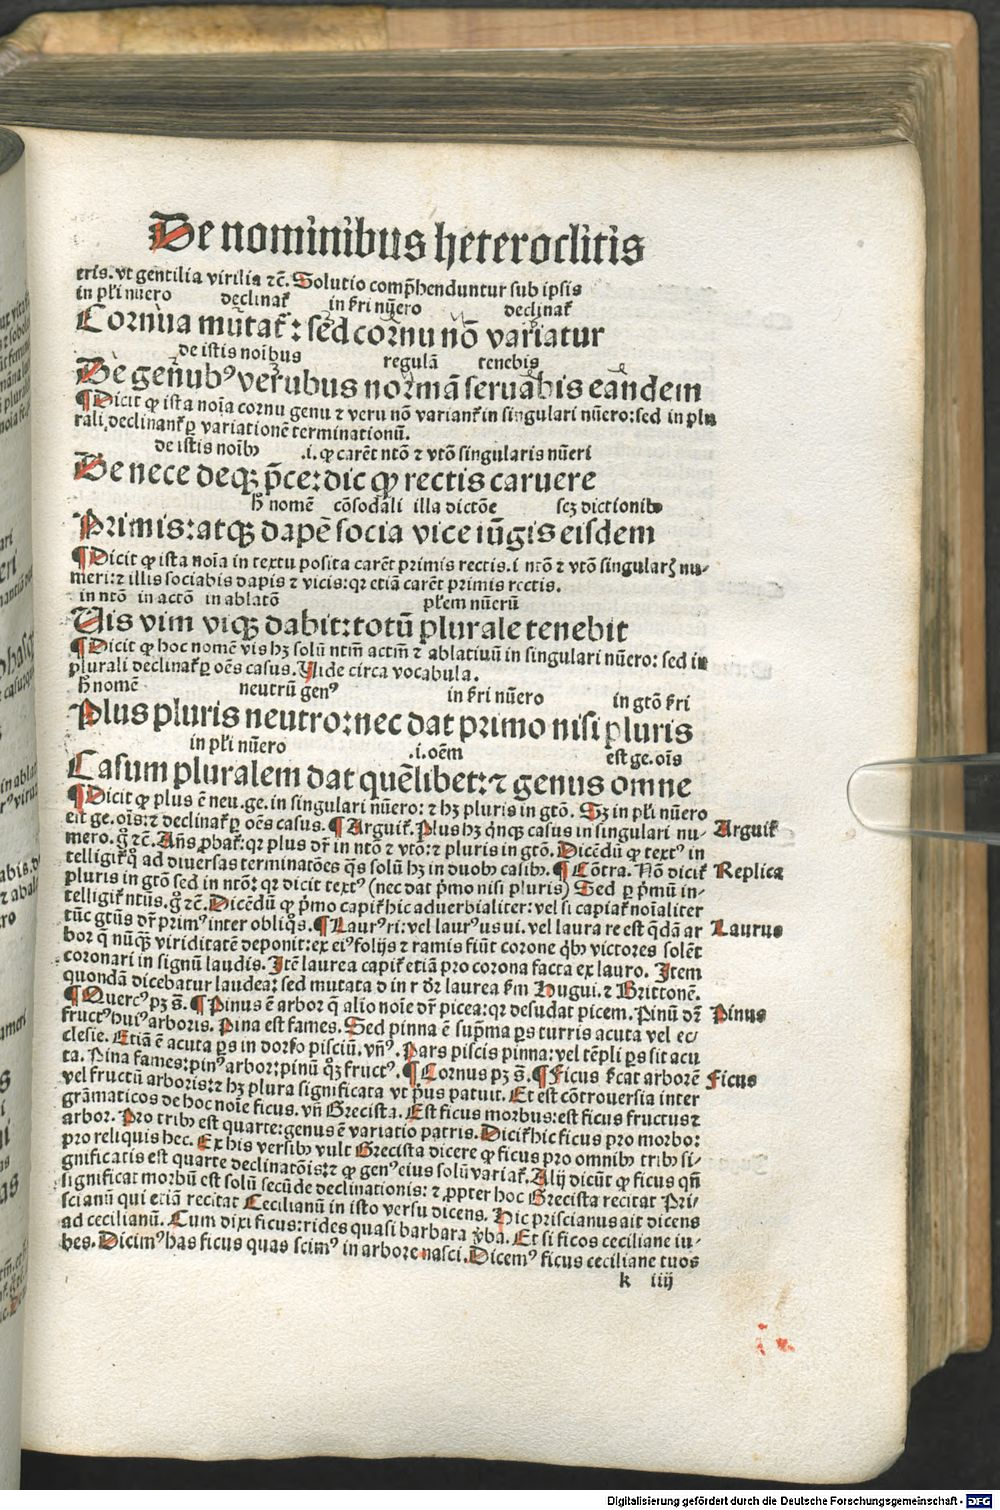 De nominibus heteroclitis
eris. vt gentilia virilia ⁊c̄. Solutio comp̄henduntur sub ipsis
in pl̄i nūero declinat᷑ in ſ̄ri nūero declinat᷑
Cornua mūtat᷑: sed cornu nō variatur
de istis noībus regulā tenebis
De genub⁹ verubus normā seruabis eandem
¶ Dicit ꝙ ista noīa cornu genu ⁊ veru nō variant᷑ in singulari nūero: sed in plu
rali, declinant᷑ ꝑ variationē terminationū.
de istis noībꝰ .i. ꝙ carēt ntō ⁊ vtō singularis nūeri
De nece deqꝫ p̄ce: dic ꝙ rectis caruere
h̄ nomē cōsodali illa dictōe scꝫ dictionibꝰ
Primis: atqꝫ dapē socia vice iūgis eisdem
¶ Dicit ꝙ ista noīa in textu posita carēt primis rectis. i ntō ⁊ vtō singularꝭ nu-
meri: ⁊ illis sociabis dapis ⁊ vicis: qꝛ etiā carēt primis rectis.
in ntō in actō in ablatō pl̄em nūerū
Uis vim viqꝫ dabit: totū plurale tenebit
¶ Dicit ꝙ hoc nomē vis hꝫ solū ntm̄ actm̄ ⁊ ablatiuū in singulari nūero: sed in
plurali declinat᷑ ꝑ oēs casus. Vide circa vocabula.
h̄ nomē neutrū gen⁹ in ſ̄ri nūero in gtō ſ̄ri
Plus pluris neutro: nec dat primo nisi pluris
in pl̄i nūero .i. oēm est ge. oīs
Casum pluralem dat quēlibet: ⁊ genus omne
¶ Dicit ꝙ plus ē neu. ge. in singulari nūero: ⁊ hꝫ pluris in gtō. Sꝫ in pl̄i nūero
est ge. oīs: ⁊ declinat᷑ ꝑ oēs casus. ¶ Arguit᷑. Plus hꝫ q̄nqꝫ casus in singulari nu- Arguit᷑
mero. g̊ ⁊c̄. Añs ꝓbat᷑: qꝛ plus dr̄ in ntō ⁊ vtō: ⁊ pluris in gtō. Dicēdū ꝙ text⁹ in
telligit᷑ q̊ ad diuersas terminatōes q̄s solū hꝫ in duobꝰ casibꝰ. ¶ Cōtra. Nō dicit᷑ Replica
pluris in gtō sed in ntō: qꝛ dicit text⁹ (nec dat p̄mo nisi pluris) Sed ꝑ p̄mū in-
telligit᷑ ntus. g̊ ⁊c̄. Dicēdū ꝙ p̄mo capit᷑ hic aduerbialiter: vel si capiat᷑ noīaliter
tūc gtūs dr̄ prim⁹ inter obliq̊s. ¶ Laur⁹ ri: vel laur⁹ us ui. vel laura re est q̄dā ar Laurus
bor q̄ nūq̄ꝫ viriditatē deponit: ex ei⁹ folijs ⁊ ramis fiūt corone q̄bꝰ victores solēt
coronari in signū laudis. Itē laurea capit᷑ etiā pro corona facta ex lauro. Item
quondā dicebatur laudea: sed mutata d in r dr̄ laurea ẜm Hugui. ⁊ Brittonē.
¶ Querc⁹ pꝫ s̄. ¶ Pinus ē arbor q̄ alio noīe dr̄ picea: qꝛ desudat picem. Pinū dr̄ Pinus
fruct⁹ hui⁹ arboris. Pina est fames. Sed pinna ē sup̄ma ꝑs turris acuta vel ec
clesie. Etiā ē acuta ꝑs in dorso pisciū. vñ⁹. Pars piscis pinna: vel tēpli ꝑs sit acu
ta. Pina fames: pin⁹ arbor: pinū qꝫ fruct⁹. ¶ Cornus pꝫ s̄. ¶ Ficus ſ̄cat arborē Ficus
vel fructū arboris: ⁊ hꝫ plura significata vt p̄us patuit. Et est cōtrouersia inter
grāmaticos de hoc noīe ficus. vñ Grecista. Est ficus morbus: est ficus fructus ⁊
arbor. Pro tribꝰ est quarte: genus ē variatio patris. Dicit᷑ hic ficus pro morbo:
pro reliquis hec. Ex his versibꝰ vult Grecista dicere ꝙ ficus pro omnibꝰ tribꝰ si-
gnificatis est quarte declinatōis: ⁊ ꝙ gen⁹ eius solū variat᷑. Alij dicūt ꝙ ficus qñ
significat morbū est solū secūde declinationis: ⁊ ꝓpter hoc Grecista recitat Pri-
scianū qui etiā recitat Cecilianū in isto versu dicens. Hic priscianus ait dicens
ad cecilianū. Cum dixi ficus: rides quasi barbara v̄ba. Et si ficos ceciliane iu-
bes. Dicim⁹ has ficus quas scim⁹ in arbore nasci. Dicem⁹ ficus ceciliane tuos
k iiij
Digitalisierung gefördert durch die Deutsche Forschungsgemeinschaft - DFG